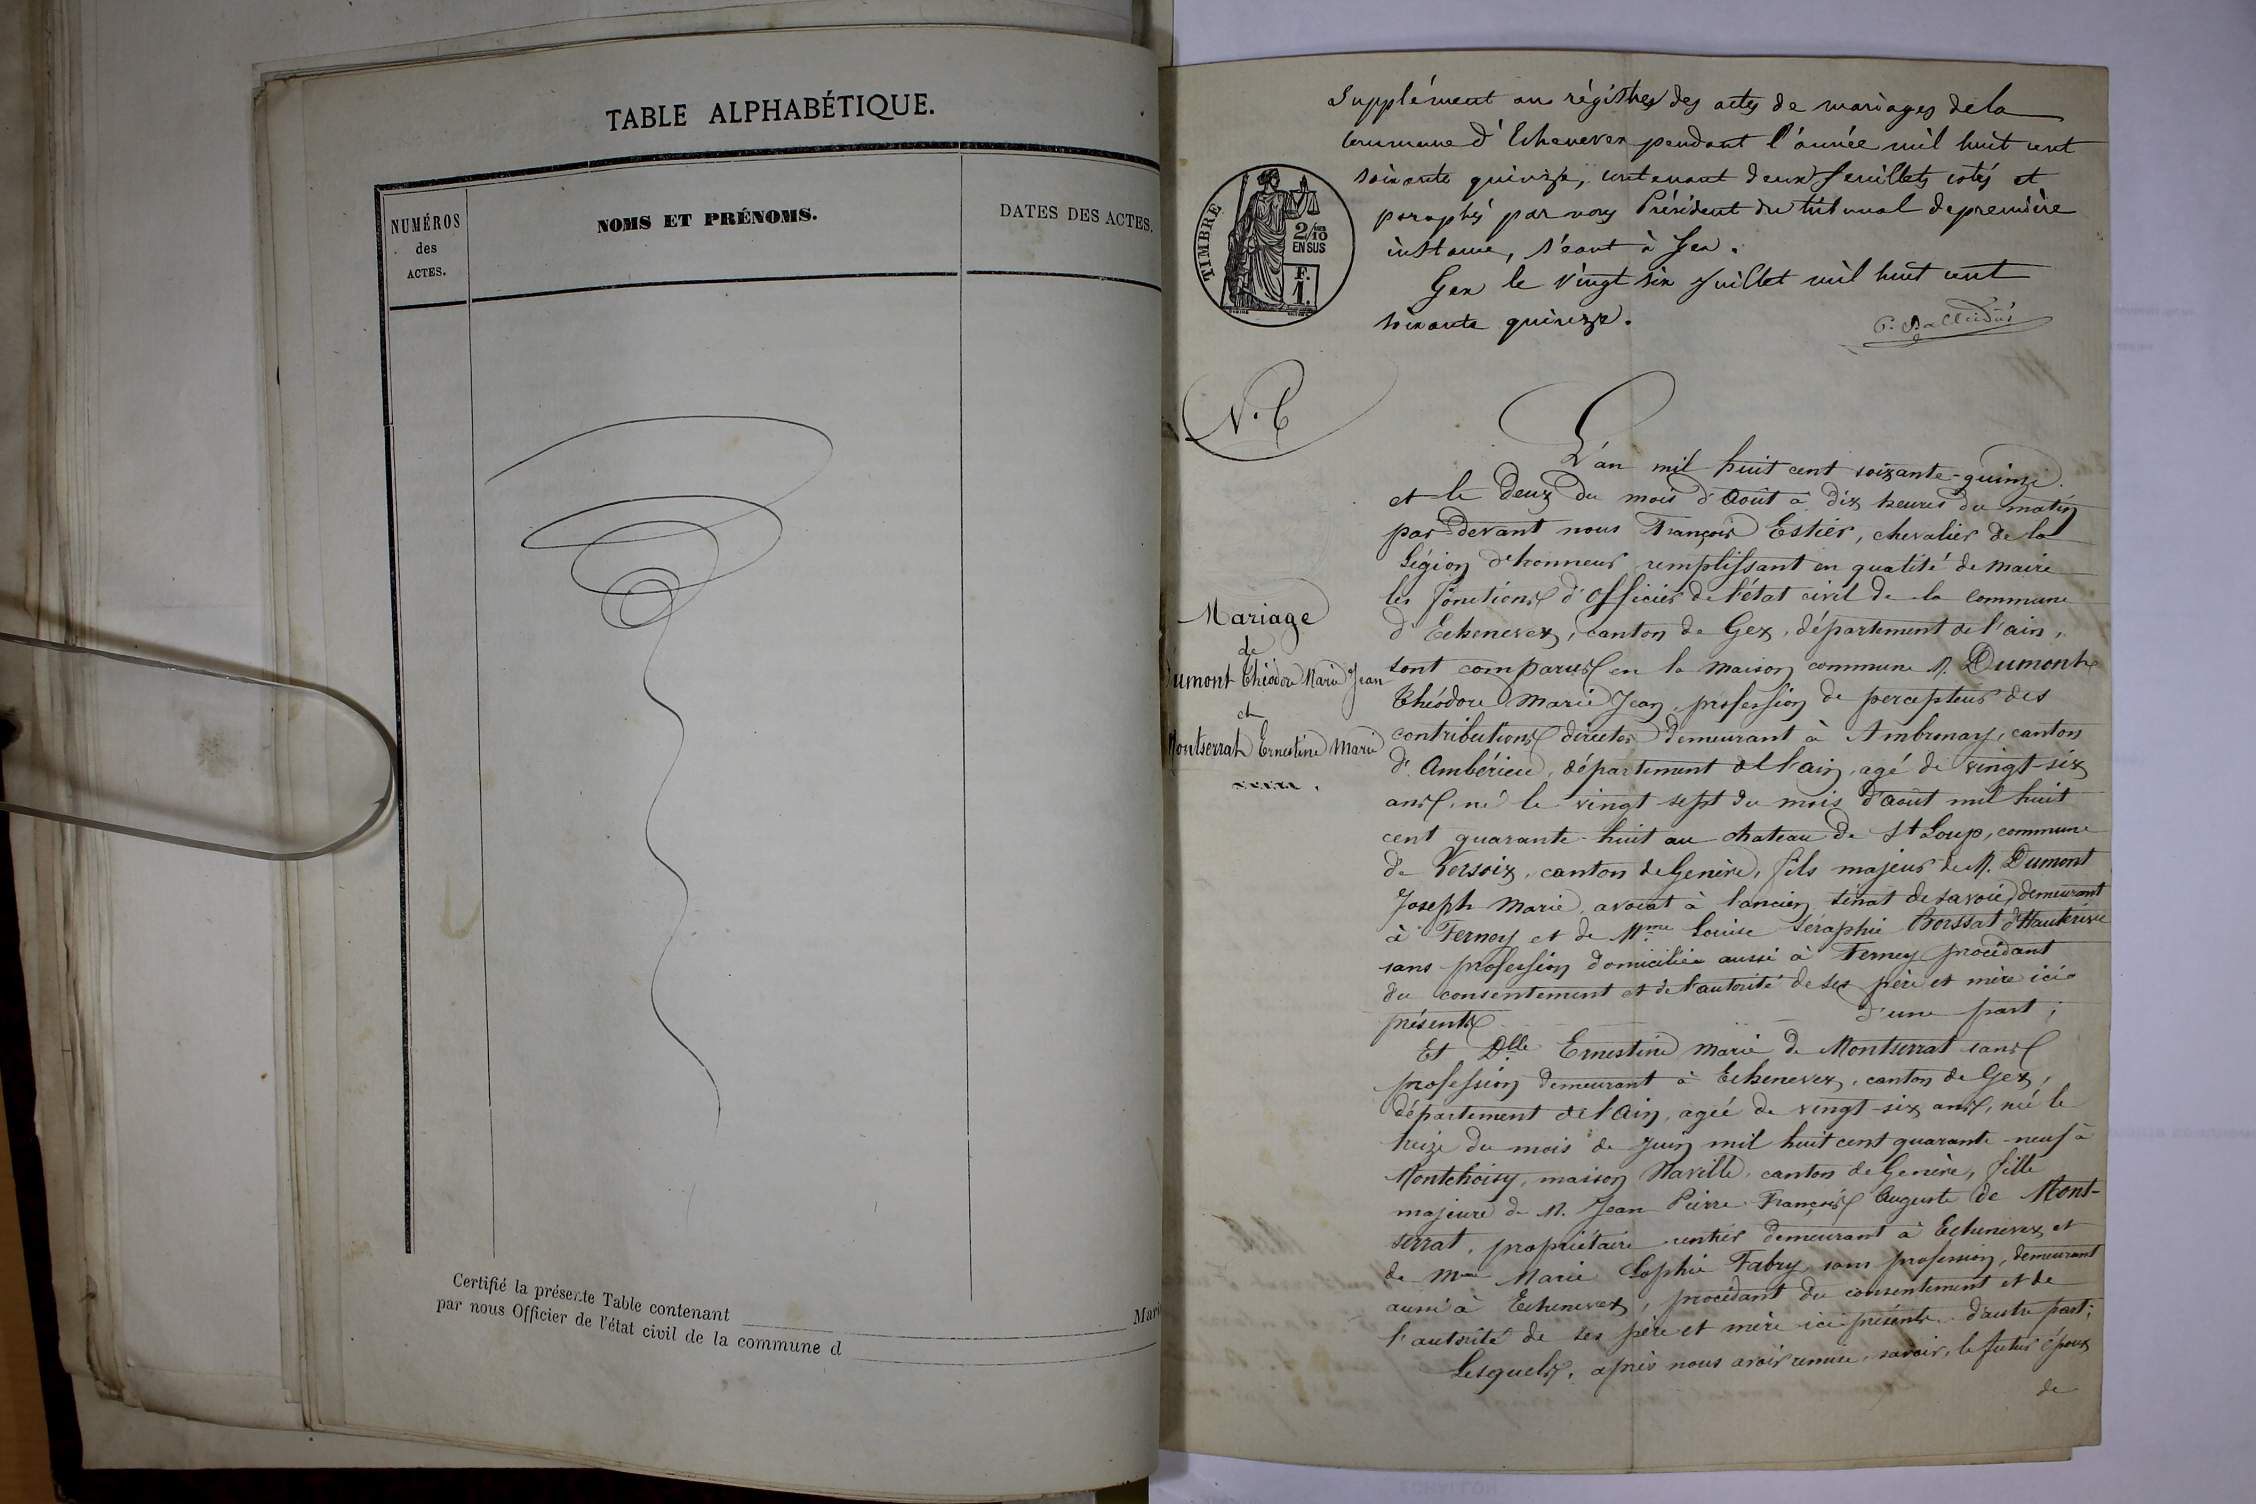 TABLE ALPHABÉTIQUE.
NUMÉROS
des
ACTES.
NOMS ET PRÉNOMS.
DATES DES ACTES.
Certifié la présente Table contenant
Mari
par nous Officier de l'état civil de la commune d
Supplément aux régistres des actes de mariages de la
Commune d'Echenevex pendant l'année mil huit cent
soixante quinze, contenant deux feuillets cotés et
paraphés par nous Président du tribunal de première
instance, séant à Gex.
Gex le vingt six Juillet mil huit cent
soixante quinze.
TIMBRE
2/10
EN SUS
F.
1.
Mariage
de
Dumont Théodore Marie Jean
et
Montserrat Ernestine Marie
L'an mil huit cent soixante-quinze
et le deux du mois d'Août à dix heures du matin
par devant nous François Estier, chevalier de la
Légion d'honneur remplissant en qualité de maire
les fonctions d'Officier de l'état civil de la commune
d'Echenevex, canton de Gex, département de l'ain,
sont comparus en la maison commune M. Dumont
Théodore Marie Jean, profession de percepteur des
contributions directes demeurant à Ambronay, canton
d'Ambérieu, département de l'ain, agé de vingt-six
ans, né le vingt sept du mois d'aout mil huit
cent quarante-huit au chateau de St Loup, commune
de Versoix, canton de Genève, fils majeur de M. Dumont
Joseph Marie, avocat à l'ancien sénat de savoie, demeurant
à Ferney et de Mme Louise Séraphie Borssat d'Hauterive
sans profession domiciliée aussi à Ferney procédant
du consentement et de l'autorité de ses père et mère ici
présents d'une part;
Et Dlle Ernestine Marie de Montserrat sans
profession demeurant à Echenevex, canton de Gex,
département de l'Ain, agée de vingt-six ans, née le
treize du mois de Juin mil huit cent quarante-neuf à
Montchoisy, maison Naville, canton de Genève, fille
majeure de M. Jean Pierre François Auguste de Mont-
serrat, propriétaire rentier demeurant à Echenevex et
de Mme Marie Sophie Fabry sans profession, demeurant
aussi à Echenevex, procédant du consentement et de
l'autorité de ses père et mère ici présents d'autre part;
Lesquels, après nous avoir remis, savoir, le futur époux
de